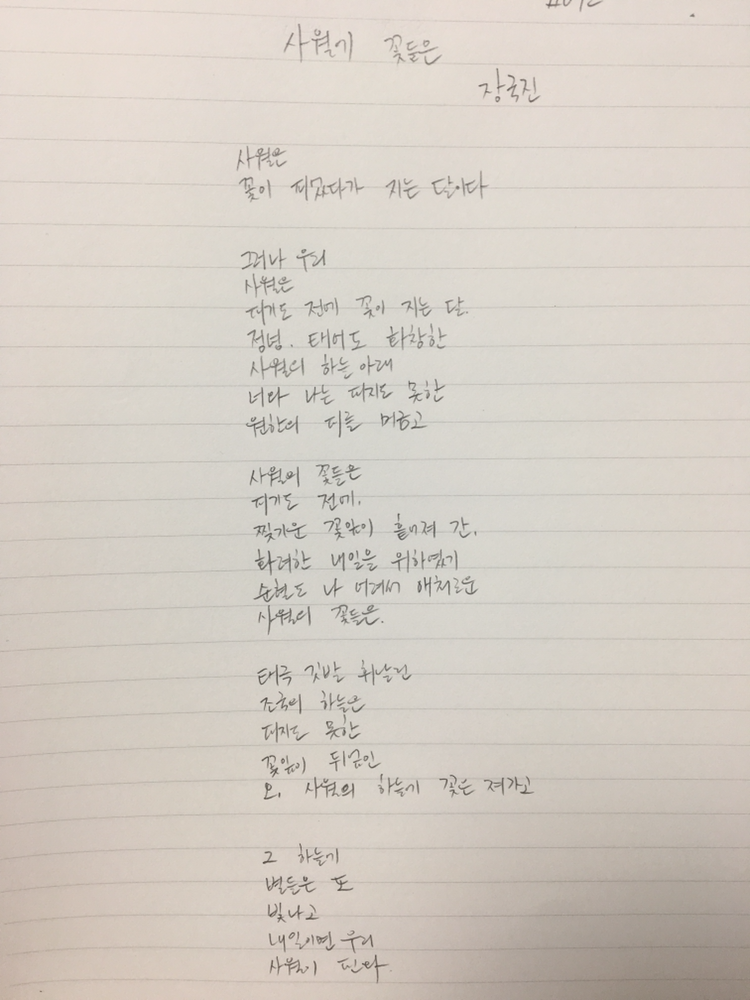 사월의 꽃들은
장국진
사월은
꽃이 피었다가 지는 달이다
그러나 우리
사월은
피기도 전에 꽃이 지는 달.
정녕. 태어도 화창한
사월의 하늘 아래
너와 나는 피지도 못한
원한의 피를 머금고
사월의 꽃들은
피기도 전에.
찢기운 꽃잎이 흩어져 간,
화려한 내일을 위하였기
순혈도 나 어려서 애처로운
사월의 꽃들은.
태극 깃발 휘날린
조국의 하늘은
피지도 못한
꽃잎이 뒤덮인
오, 사월의 하늘에 꽃은 져가고
그 하늘에
별들은 또
빛나고
내일이면 우리
사월이 핀다.